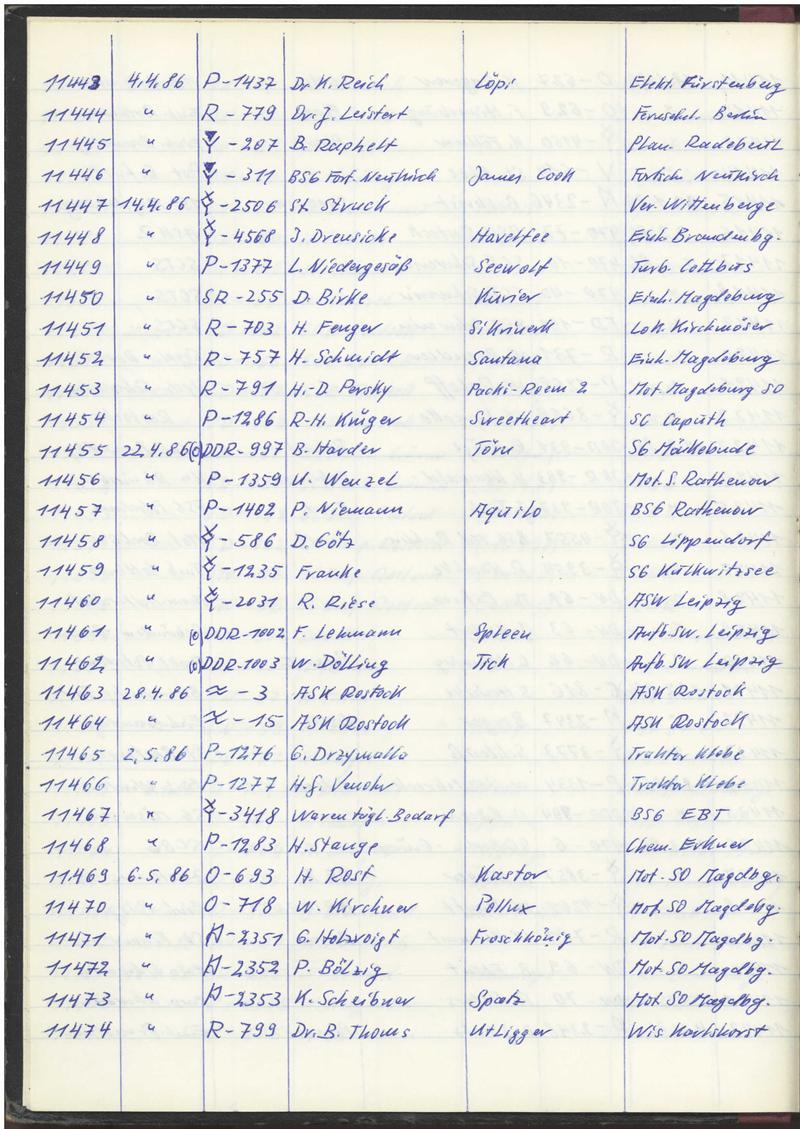 11443 4.4.86 P-1437 Dr. K. Reich Löpi Elekt. Fürstenberg
11444 " R-779 Dr. J. Leistert Fernschel. Berlin
11445 " -207 B. Raphelt Plan. Radebeul
11446 " -311 BSG Fort. Neukirch James Cook Fortsch. Neukirch
11447 14.4.86 -2506 St. Struck Ver. Wittenberge
11448 " -4568 J. Dreusicke Hardfee Einh. Brandenbg.
11449 " P-1377 L. Niedergesäß Seewolf Turb. Cottbus
11450 " SR-255 D. Birke Kurier Einh. Magdeburg
11451 " R-703 H. Fenger Lok. Kirchmöser
11452 " R-757 H. Schmidt Santana Einh. Magdeburg
11453 " R-791 H.-D. Persky Pachi-Roem 2 Mot. Magdeburg SO
11454 " P-1286 R-H. Krüger Sweetheart SG Caputh
11455 22.4.86 (o)DDR-997 B. Harder Törn SG Mökebude
11456 " P-1359 U. Wenzel Mot. S. Rathenow
11457 " P-1402 P. Niemann Aquilo BSG Rathenow
11458 " -586 D. Götz SG Lippendorf
11459 " -1235 Franke SG Kulkwitzsee
11460 " -2031 R. Riese ASW Leipzig
11461 " (o)DDR-1002 F. Lehmann Spleen Aufb. SW. Leipzig
11462 " (o)DDR-1003 W. Dölling Tick Aufb. SW Leipzig
11463 28.4.86 ≈-3 ASK Rostock ASK Rostock
11464 " ≈-15 ASK Rostock ASK Rostock
11465 2.5.86 P-1276 G. Drzymalla Traktor Klebe
11466 " P-1277 H.-J. Venohr Traktor Klebe
11467 " -3418 Waren tägl. Bedarf BSG EBT
11468 " P-1283 H. Stange Chem. Erkner
11469 6.5.86 O-693 H. Rost Kastor Mot. SO Magdbg.
11470 " O-718 W. Kirchner Pollux Mot. SO Magdebg.
11471 " -2351 G. Holzvoigt Froschkönig Mot. SO Magdbg.
11472 " -2352 P. Bölzig Mot. SO Magdbg.
11473 " -2353 K. Scheibner Spatz Mot. SO Magdbg.
11474 " R-799 Dr. B. Thoms Utligger Wis. Karlshorst